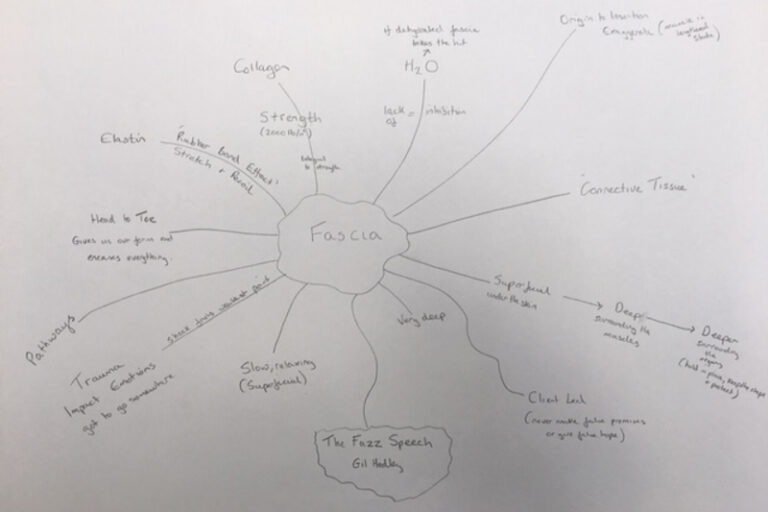 If dehydrated fascia
takes the hit
H2O
lack of = inhibition
Origin to Insertion
Exaggerate (muscle in
lengthened state)
Collagen
Strength
(2000 lb/in²)
to strength
Elastin
'Rubber Band Effect'
Stretch + Recoil
'Connective Tissue'
Head to Toe
Gives us our form and
encases everything.
Fascia
Superficial
under the skin
Deep
surrounding the
muscles
Deeper
surrounding
the
organs
(hold in place, keeps the shape
+ protect)
Very deep
Pathways
shock finds weakest point
Trauma
Impact Emotions
got to go somewhere
Slow, relaxing
(Superficial)
Client Led
(never make false promises
or give false hope)
The Fuzz Speech
Gil Hedley